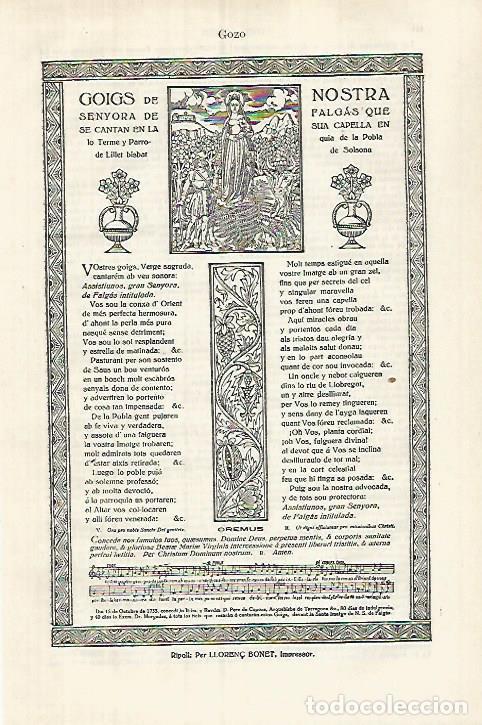 Gozo
GOIGS DE NOSTRA
SENYORA DE FALGÁS QUE
SE CANTAN EN LA SUA CAPELLA EN
lo Terme y Parro- quia de la Pobla
de Lillet bisbat de Solsona
VOstres goigs, Verge sagrada,
cantarém ab veu sonora:
Assistiunos, gran Senyora,
de Falgás intitulada.
Vos sou la conxa d' Orient
de més perfecta hermosura,
d' ahont la perla més pura
nasqué sense detriment;
Vos sou lo sol resplandent
y estrella de matinada: &c.
Pasturant per son sostento
de Saus un bou venturós
en un bosch molt escabrós
senyals dona de contento;
y advertiren lo portento
de cosa tan impensada: &c.
De la Pobla gent pujaren
ab fe viva y verdadera,
y assota d' una falguera
la vostra Imatge trobaren;
molt admirats tots quedaren
d' estar aixis retirada: &c.
Luego lo poble pujá
ab solemne professó;
y ab molta devoció,
á la parroquia us portaren;
el Altar vos col·locaren
y allí fóren venerada: &c.
Molt temps estigué en aquella
vostre Imatge ab un gran zel,
fins que per secrets del cel
y singular maravella
vos feren una capella
prop d'ahont fóreu trobada: &c.
Aquí miracles obrau
y portentos cada dia
als tristos dau alegria y
als malalts salut donau;
y en lo part aconsolau
quant de cor nou invocada: &c.
Un oncle y nebot caigueren
dins lo riu de Llobregat,
un y altre deslliurat,
per Vos lo remey tingueren;
y sens dany de l'ayga isqueren
quant Vos fóreu reclamada: &c.
¡Oh Vos, planta cordial;
¡oh Vos, falguera divina!
al devot que á Vos se inclina
deslliuraulo de tot mal;
y en la cort celestial
feu que hi tinga sa posada: &c.
Puig sou la nostra advocada,
y de tots sou protectora:
Assistiunos, gran Senyora,
de Falgás intitulada.
OREMUS
V. Ora pro nobis Sancte Dei genitrix. R. Ut digni efficiamur promissionibus Christi.
Concede nos famulos tuos, quæsumus, Domine Deus, perpetua mentis, & corporis sanitate
gaudere, & gloriosa Beatæ Mariæ Virginis intercessione á presenti liberari tristitia, & æterna
perfrui letitia. Per Christum Dominum nostrum. R. Amen.
Dia 15 de Octubre de 1755, concedí lo Iltm. y Revdm. D. Pere de Copons, Arquebisbe de Tarragona &c., 80 dias de indulgencia,
y 40 lo Excm. Dr. Morgades, á tots los fiels que resarán ó cantarán estos Goigs, devant la Santa Imatge de N. S. de Falgás.
Ripoll: Per LLORENÇ BONET, Impressor.
todocoleccion